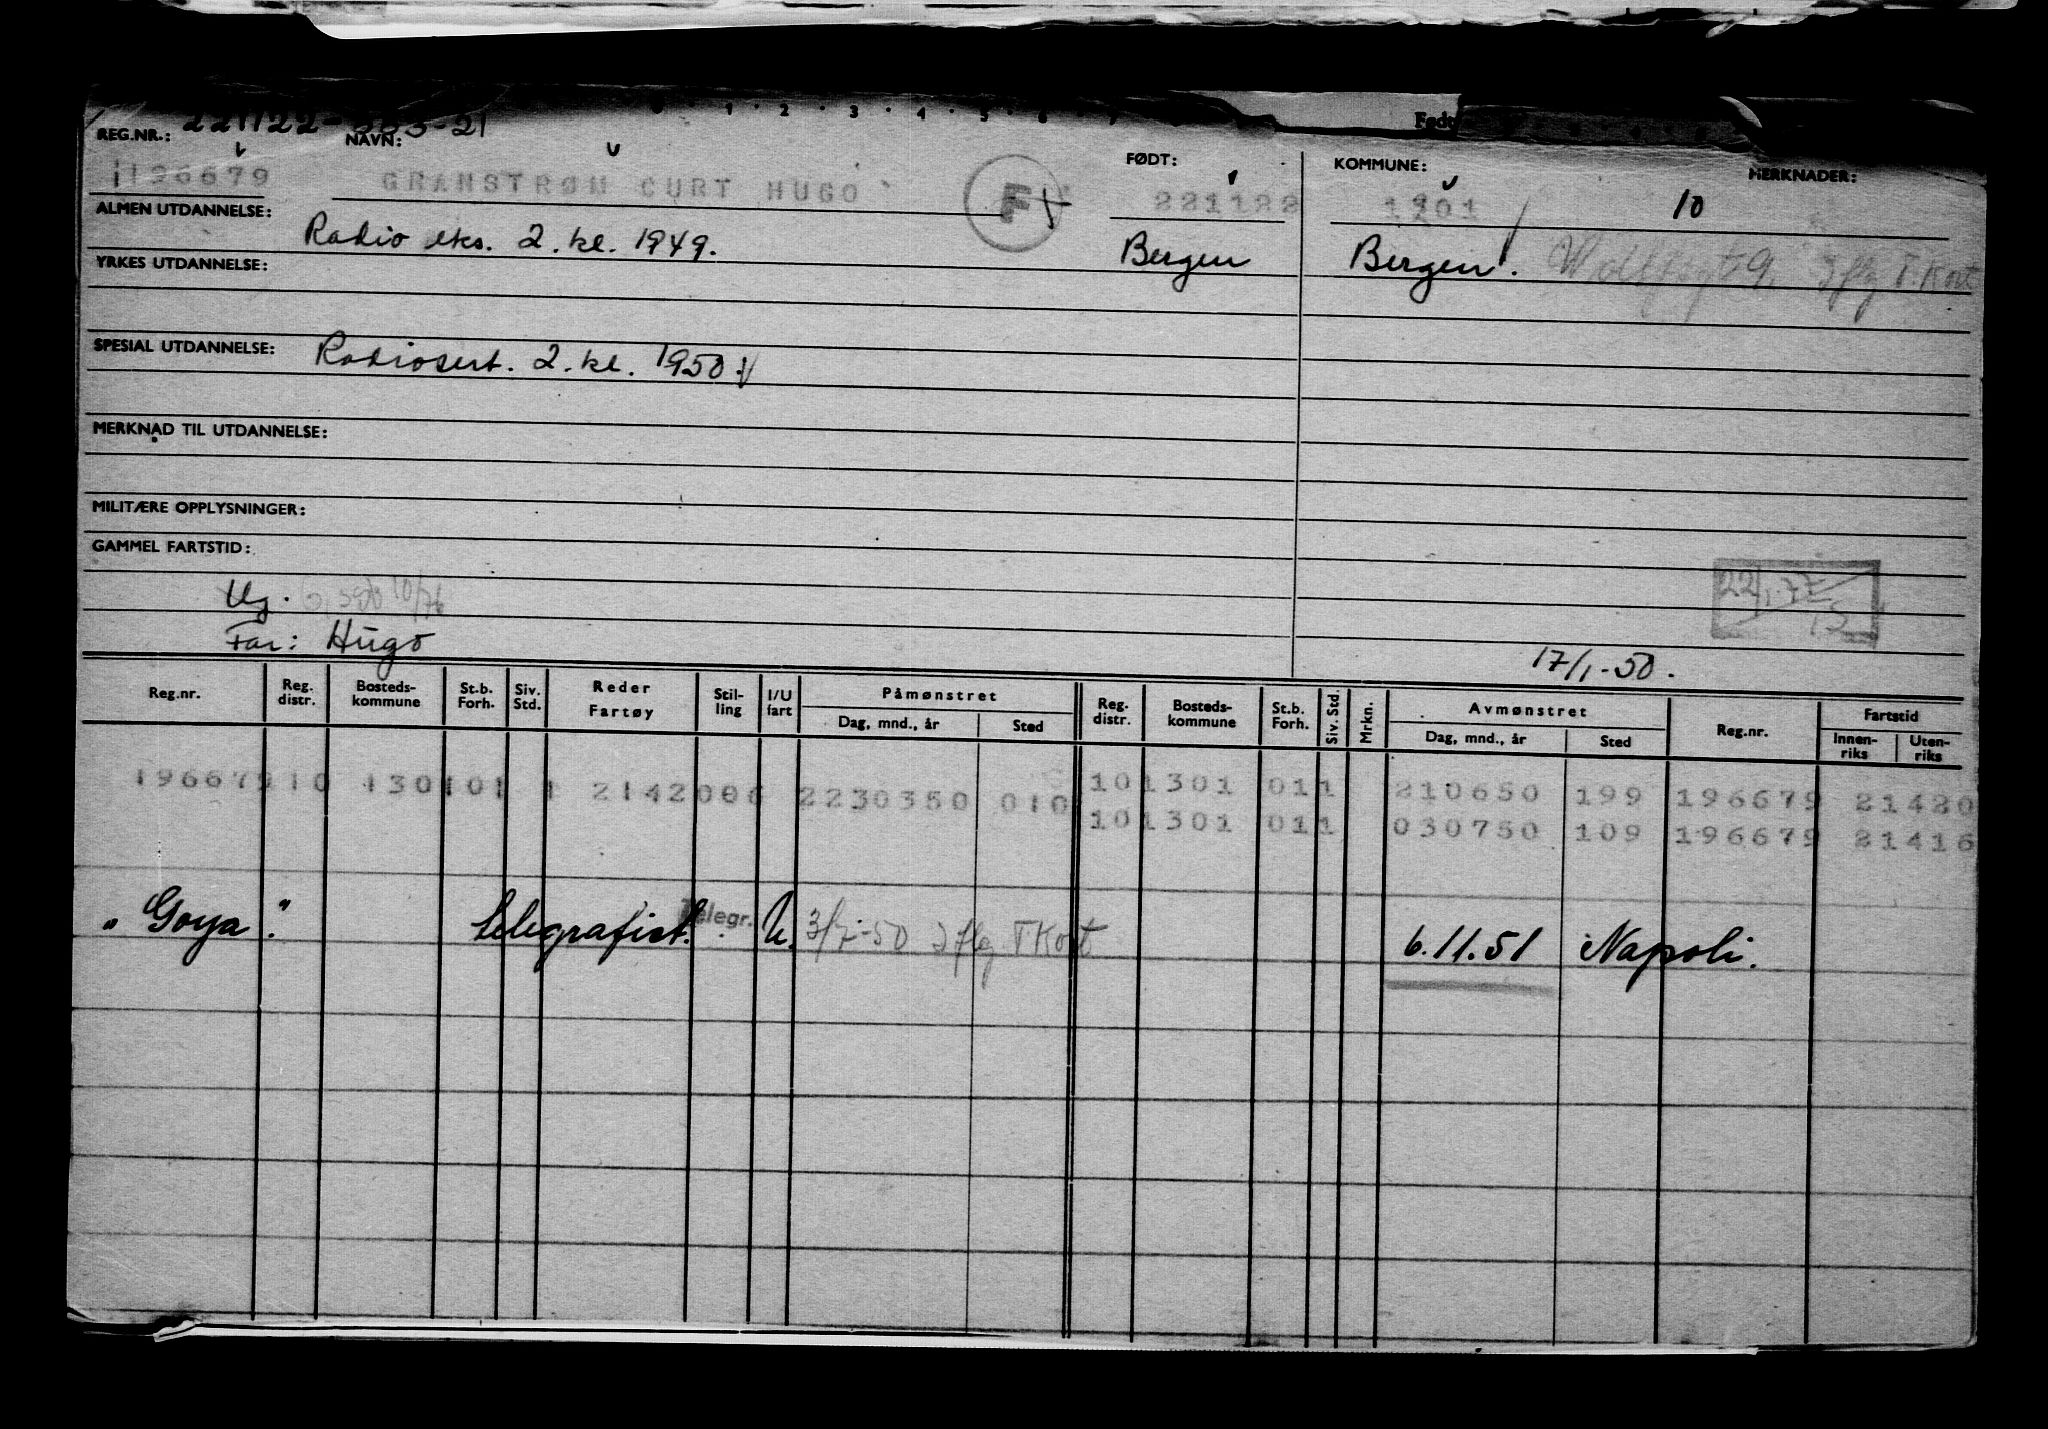 221122-
0 · 1 · 2 · 3 · 4 · 5 · 6 · 7
REG.NR.: NAVN: FØDT: KOMMUNE: MERKNADER:
196679 GRANSTRØM CURT HUGO F 221122 1201 10
ALMEN UTDANNELSE: Radio eks. 2. kl. 1949. Bergen Bergen. T. Kort
YRKES UTDANNELSE:
SPESIAL UTDANNELSE: Radiosert. 2. kl. 1950.
MERKNAD TIL UTDANNELSE:
MILITÆRE OPPLYSNINGER:
GAMMEL FARTSTID:
Ug. 10/76
Far: Hugo
17/1-50.
Reg.nr. Reg. distr. Bosteds-kommune St.b. Forh. Siv. Std. Reder Fartøy Stil-ling I/U fart Påmønstret Dag, mnd., år Sted Reg. distr. Bosteds-kommune St.b. Forh. Siv. Std. Mrkn. Avmønstret Dag, mnd., år Sted Reg.nr. Fartstid Innen-riks Uten-riks
196679 10 1301 01 1 2142006 2230350 010 10 1301 01 1 210650 199 196679 21420
10 1301 01 1 030750 109 196679 21416
"Goya". telegrafist. Telegr. U. 3/7-50 Iflg T Kort 6.11.51 Napoli.